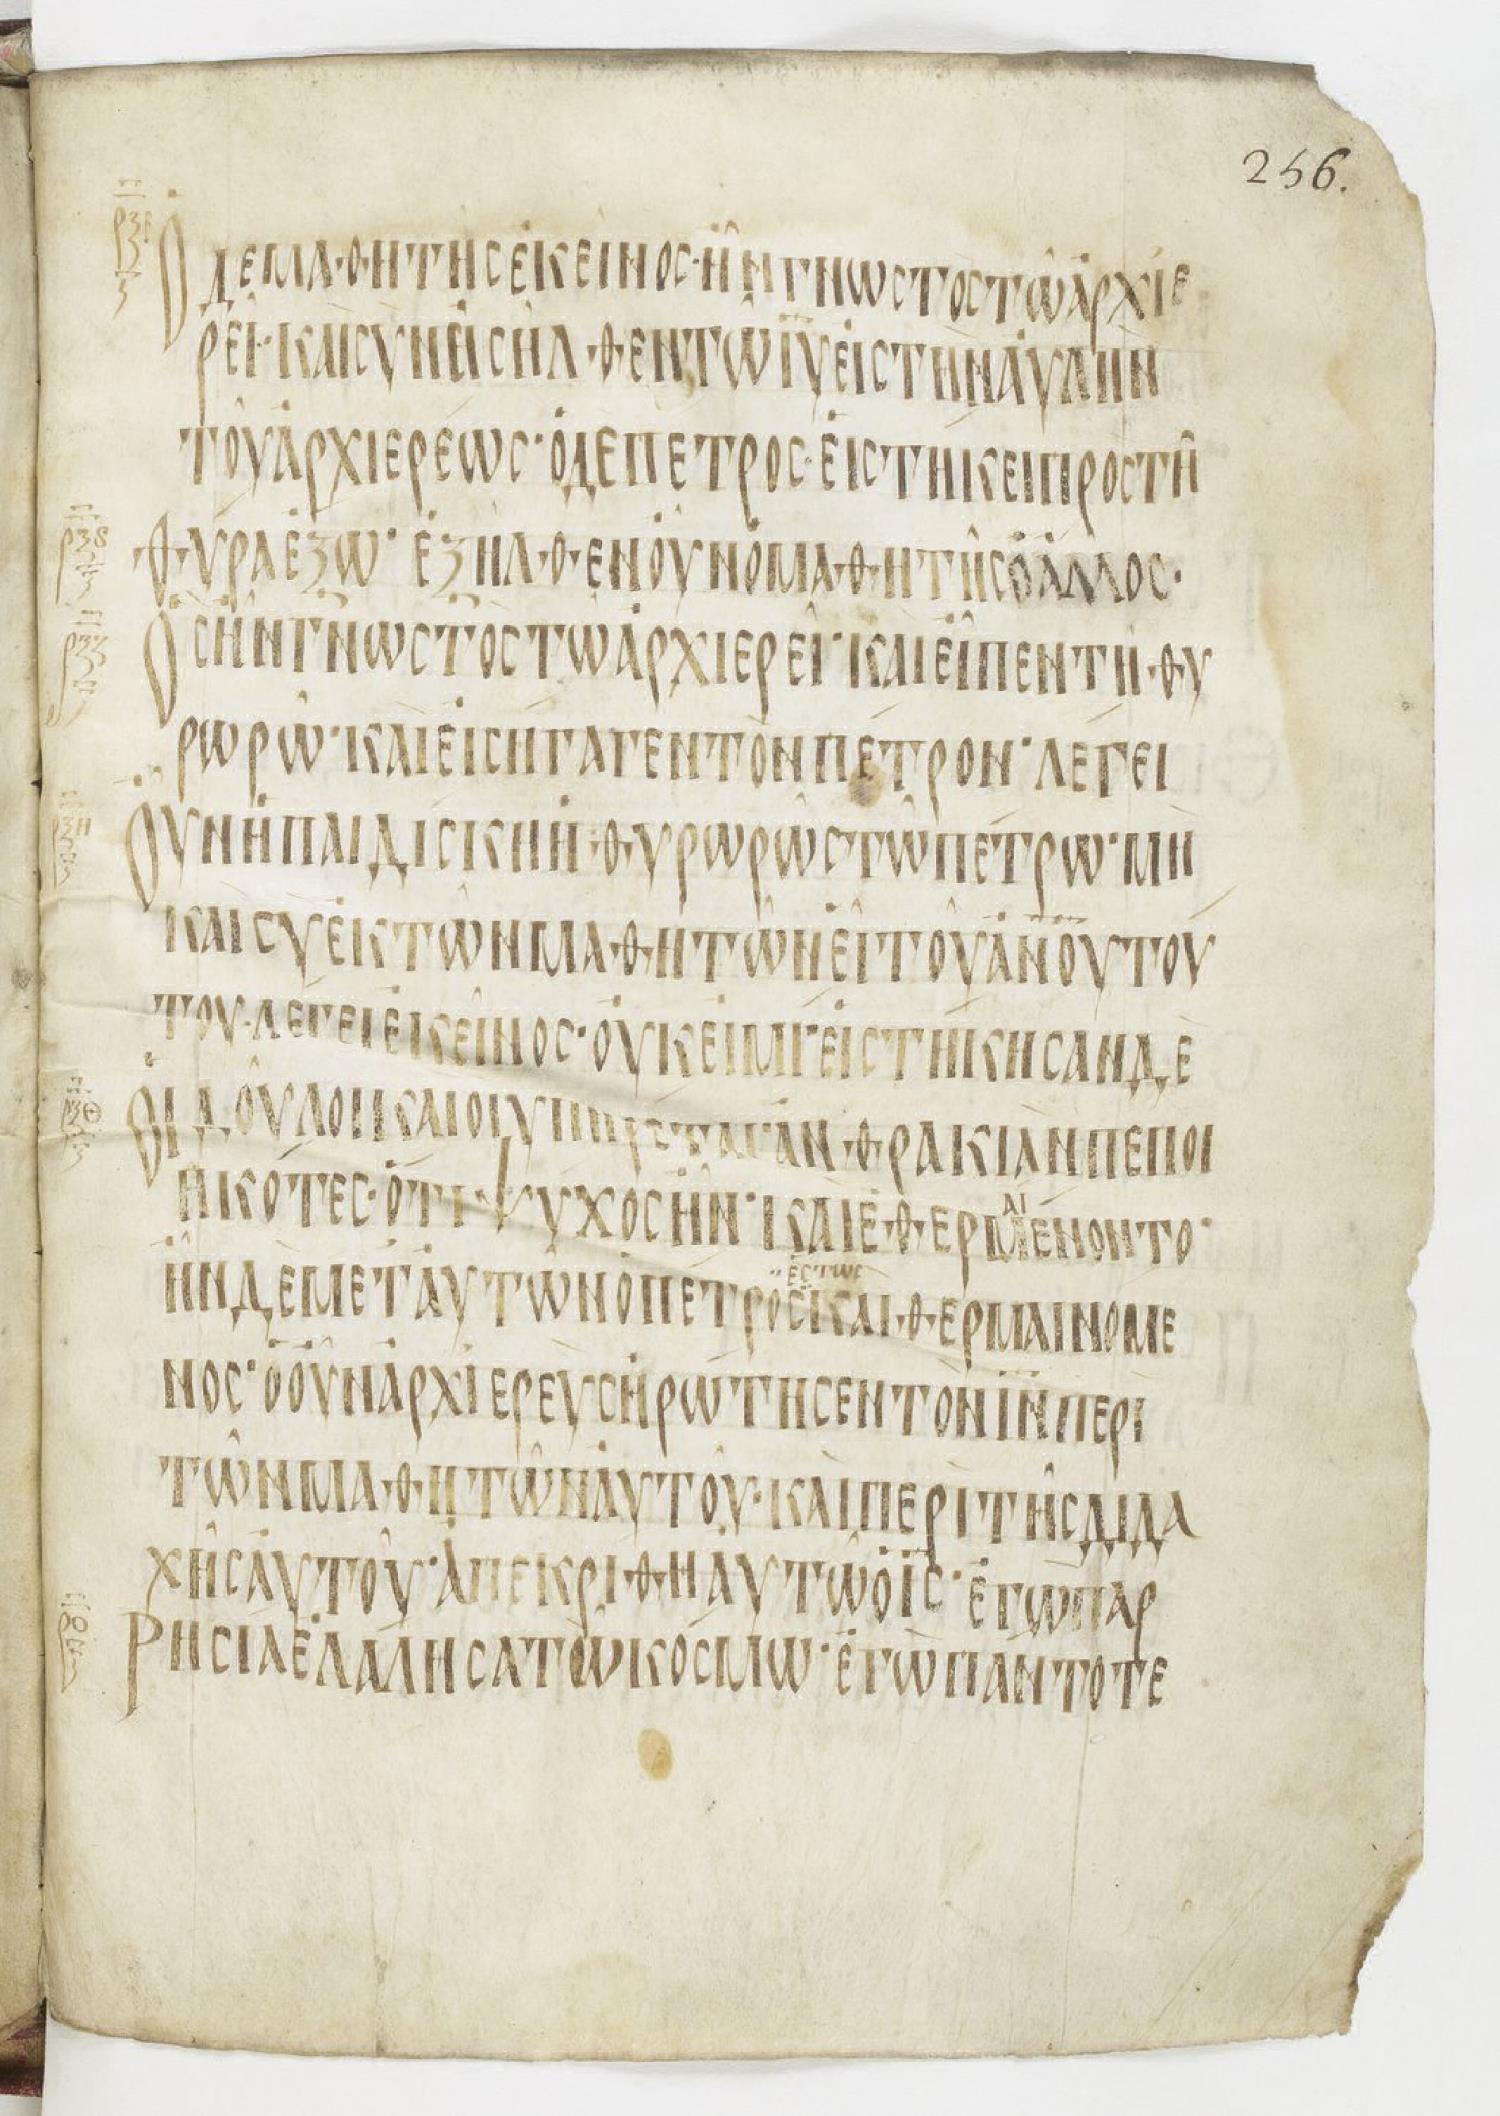 256.
Ὁ ΔΕΜΑΘΗΤΗΣΕΚΕΙΝΟΣ·ΗΝΓΝΩΣΤΟΣΤΩΑΡΧΙΕ
ΡΕΙ·ΚΑΙΣΥΝΕΙΣΗΛΘΕΝΤΩΙΥΕΙΣΤΗΝΑΥΛΗΝ
ΤΟΥΑΡΧΙΕΡΕΩΣ·ΟΔΕΠΕΤΡΟΣ·ΕΙΣΤΗΚΕΙΠΡΟΣΤΗ
ΘΥΡΑΕΞΩ·ΕΞΗΛΘΕΝΟΥΝΟΜΑΘΗΤΗΣΟΑΛΛΟΣ·
ΟΣΗΝΓΝΩΣΤΟΣΤΩΑΡΧΙΕΡΕΙ·ΚΑΙΕΙΠΕΝΤΗΘΥ
ΡΩΡΩ·ΚΑΙΕΙΣΗΓΑΓΕΝΤΟΝΠΕΤΡΟΝ·ΛΕΓΕΙ
ΟΥΝΗΠΑΙΔΙΣΚΗΗΘΥΡΩΡΩΣΤΩΠΕΤΡΩ·ΜΗ
ΚΑΙΣΥΕΚΤΩΝΜΑΘΗΤΩΝΕΙΤΟΥΑΝΟΥΤΟΥ
ΤΟΥ·ΛΕΓΕΙΕΚΕΙΝΟΣ·ΟΥΚΕΙΜΙ·ΕΙΣΤΗΚΗΣΑΝΔΕ
ΟΙΔΟΥΛΟΙΚΑΙΟΙΥΠΗΡΕΤΑΙΑΝΘΡΑΚΙΑΝΠΕΠΟΙ
ΗΚΟΤΕΣ·ΟΤΙΨΥΧΟΣΗΝ·ΚΑΙΕΘΕΡΜΑΙΕΝΟΝΤΟ·
ΕΣΤΩΣ
ΗΝΔΕΜΕΤΑΥΤΩΝΟΠΕΤΡΟΣΚΑΙΘΕΡΜΑΙΝΟΜΕ
ΝΟΣ·ΟΟΥΝΑΡΧΙΕΡΕΥΣΗΡΩΤΗΣΕΝΤΟΝΙΝΠΕΡΙ
ΤΩΝΜΑΘΗΤΩΝΑΥΤΟΥ·ΚΑΙΠΕΡΙΤΗΣΔΙΔΑ
ΧΗΣΑΥΤΟΥ·ΑΠΕΚΡΙΘΗΑΥΤΩΟΙΣ·ΕΓΩΠΑΡ
ΡΗΣΙΑΕΛΑΛΗΣΑΤΩΚΟΣΜΩ·ΕΓΩΠΑΝΤΟΤΕ